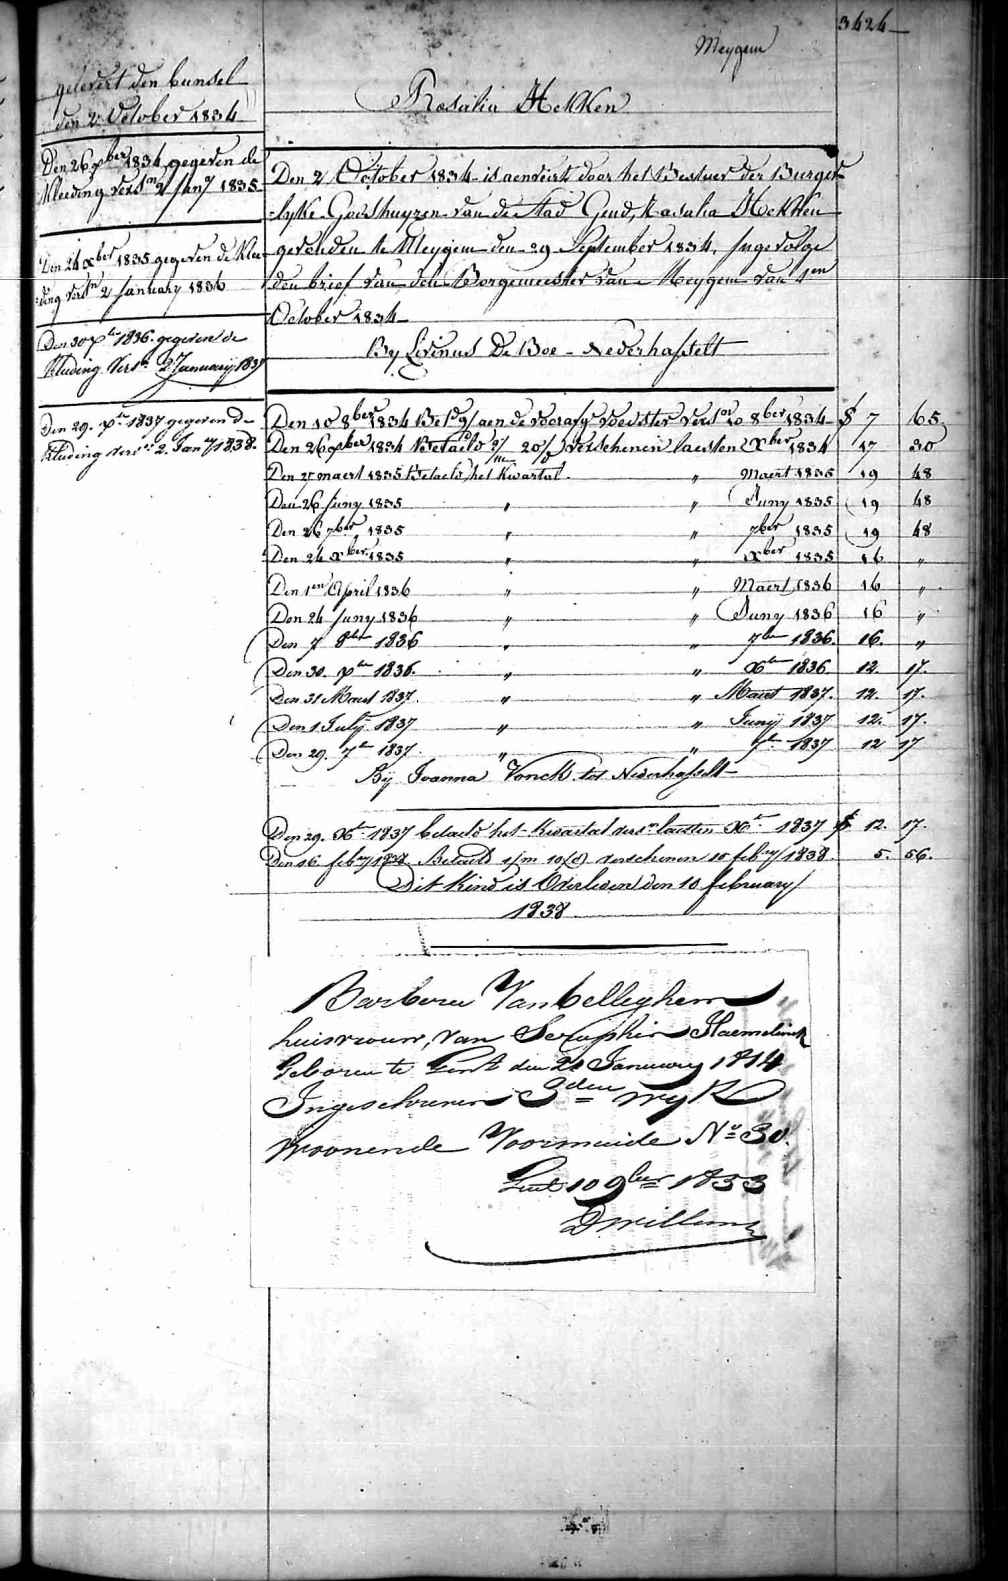 3424
Meygem
Rosalia Hekken
gelevert den bundel
den 2 October 1834
Den 26 xber 1834 gegeven de
Kleeding versn 2 Jany 1835
Den 24 xber 1835 gegeven de Klee-
ding versn 2 January 1836
Den 30 xber 1836 gegeven de
Kleeding Versn 2 January 1837
Den 29. xber 1837 gegeven de
Kleeding versn 2 Jany 1838.
Den 2 October 1834 is aenveird door het Bestuer der Burger-
lyke Godshuyzen van de stad Gend, Rosalia Hekken
gevonden te Meygem den 29 September 1834, Ingevolge
den brief van den Borgemeester van Meygem van 1en
October 1834
By Livinus De Boe - Nederhasselt
Den 10 8ber 1834 Betd aen de voorafg voedster vers 10 8ber 1834 7 65
Den 26 xber 1834 Betaeld 2/m 20/d verschenen laesten Xber 1834 17 30
Den 27 maert 1835 Betaeld het Kwartael " Maert 1835 19 48
Den 26 Juny 1835 " " Juny 1835 19 48
Den 26 7ber 1835 " " 7ber 1835 19 48
Den 24 xber 1835 " " Xber 1835 16 "
Den 1en April 1836 " " Maert 1836 16 "
Den 24 Juny 1836 " " Juny 1836 16 "
Den 7 8ber 1836 " " 7ber 1836. 16. "
Den 30. xber 1836. " " Xber 1836 12. 17.
Den 31 Maert 1837. " " Maert 1837. 12. 17.
Den 1 July 1837 " " Juny 1837 12. 17.
Den 29. 7ber 1837. " " 7ber 1837 12 17
Bij Joanna Vonck tot Nederhasselt
Den 29. Xber 1837 betaeld het Kwartael versn laesten Xber 1837 12. 17.
Den 16 febry 1838 Betaeld 1/m 10/d verschenen 10 febry 1838. 5. 56.
Dit Kind is Overleden den 10 february
1838
Barbara Vanbelleghem
huisvrouw, van Seraphin Haemelinck
Geboren te Gent den 21 January 1814
Ingeschreven 3den wyk
Woonende Voormuide No 30.
Gent 10 9ber 1833
DWillems